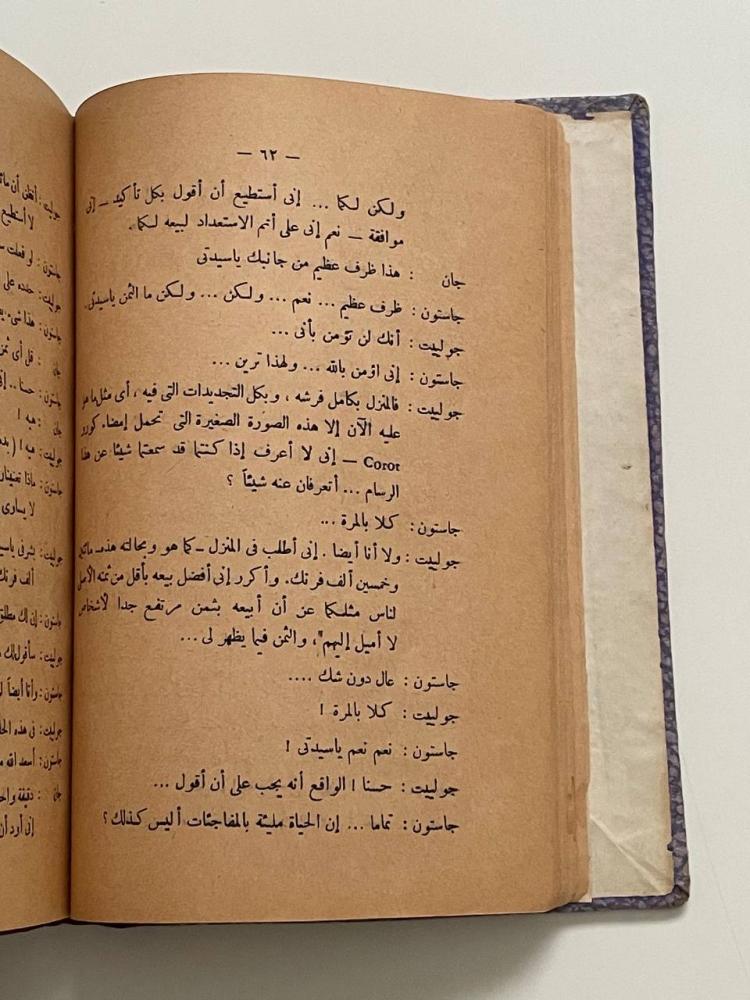 — ٦٢ —
ولكن لكما ... إنى أستطيع أن أقول بكل تأكيد — إنى
موافقة — نعم إنى على أتم الاستعداد لبيعه لكما.
جان : هذا ظرف عظيم من جانبك ياسيدتى
جاستون : ظرف عظيم ... نعم ... ولكن ... ولكن ما الثمن ياسيدتى.
جولييت : أنك لن تؤمن بأنى ...
جاستون : إنى اؤمن بالله ... ولهذا ترين ...
جولييت : فالمنزل بكامل فرشه ، وبكل التجديدات التى فيه ، أى مثل ما هو
عليه الآن إلا هذه الصورة الصغيرة التى تحمل إمضاء كورو
Corot — إنى لا أعرف إذا كنتما قد سمعتما شيئا عن هذا
الرسام ... أتعرفان عنه شيئاً ؟
جاستون : كلا بالمرة ...
جولييت : ولا أنا أيضا . إنى أطلب فى المنزل — كما هو وبحالته هذه —
وخمسين ألف فرنك. وأكرر إنى أفضل بيعه بأقل من ثمنه الأصلى
لناس مثلكما عن أن أبيعه بثمن مرتفع جدا لأشخاص
لا أميل إليهم، والثمن فيما يظهر لى ...
جاستون : عال دون شك ....
جولييت : كلا بالمرة !
جاستون : نعم نعم ياسيدتى !
جولييت : حسنا ! الواقع أنه يجب على أن أقول ...
جاستون : تماما ... إن الحياة مليئة بالمفاجئات أليس كذلك ؟